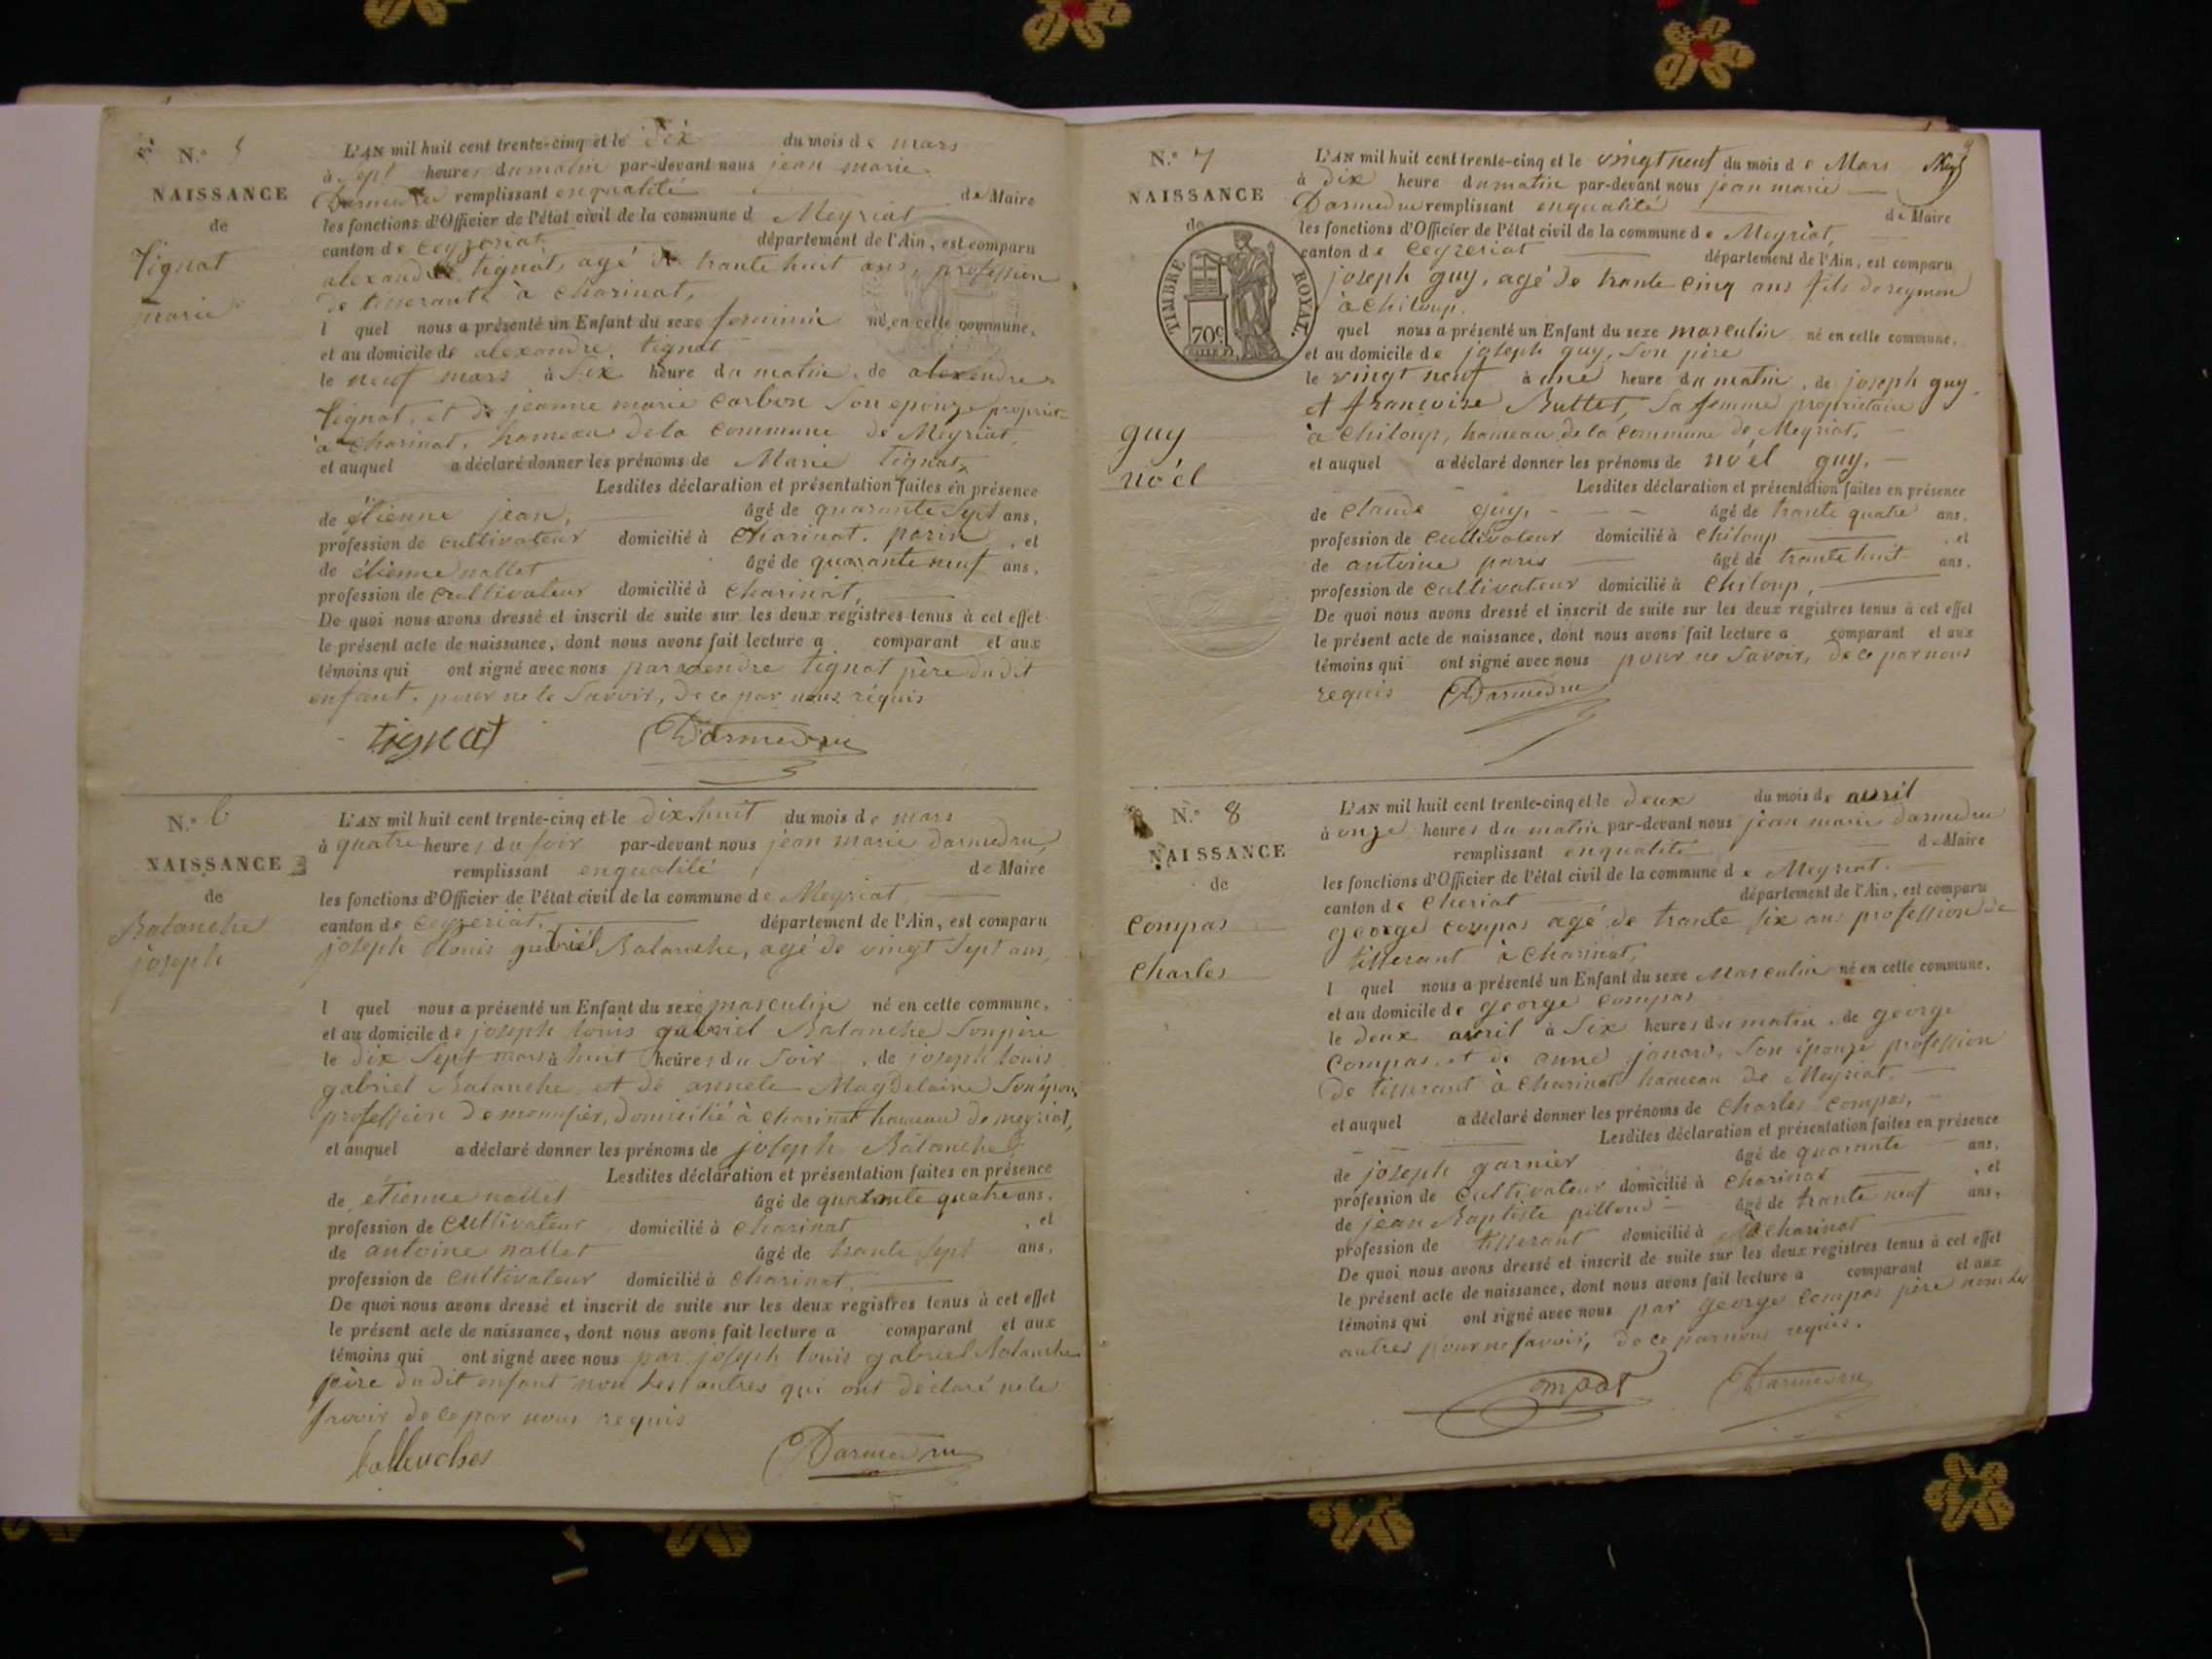 N.º 5
NAISSANCE
de
Tignat
marie
L'AN mil huit cent trente-cinq et le dix du mois de mars
à sept heures du matin par-devant nous jean marie
Darmedru remplissant en qualité de Maire
les fonctions d'Officier de l'état civil de la commune d Meyriat
canton de Ceyzeriat, département de l'Ain, est comparu
alexandre tignat, agé de trante huit ans, profession
de tisserant à Charinat,
l quel nous a présenté un Enfant du sexe feminin né en cette commune,
et au domicile de alexandre tignat
le neuf mars à six heure du matin, de alexandre
Tignat, et de jeanne marie Carbon son epouze propriét
à Charinat, hameau de la Commune de Meyriat,
et auquel a déclaré donner les prénoms de Marie Tignat,
Lesdites déclaration et présentation faites en présence
de étienne jean, âgé de quarante sept ans,
profession de cultivateur domicilié à Charinat. , et
de étienne nallet âgé de quarante neuf ans,
profession de Cultivateur domicilié à Charinat,
De quoi nous avons dressé et inscrit de suite sur les deux registres tenus à cet effet
le présent acte de naissance, dont nous avons fait lecture a comparant et aux
témoins qui ont signé avec nous tignat père dudit
enfant, pour ne le savoir, de ce par nous réquis
tignat Darmedru
N.º 6
NAISSANCE
de
Balanche
joseph
L'AN mil huit cent trente-cinq et le dix huit du mois de mars
à quatre heures du soir par-devant nous jean marie darmedru,
remplissant en qualité de Maire
les fonctions d'Officier de l'état civil de la commune de Meyriat
canton de Ceyzeriat, département de l'Ain, est comparu
joseph Louis gabriel Balanche, agé de vingt sept ans,
l quel nous a présenté un Enfant du sexe masculin né en cette commune,
et au domicile de joseph louis gabriel Balanche son père
le dix sept mars à huit heures du soir, de joseph louis
gabriel Balanche, et de annete Magdelaine son épouz
profession de menusier, domicilié à Charinat hameau de meyriat,
et auquel a déclaré donner les prénoms de joseph Balanche
Lesdites déclaration et présentation faites en présence
de étienne nallet âgé de quarante quatre ans,
profession de Cultivateur domicilié à Charinat , et
de antoine nallet âgé de trante sept ans,
profession de Cultivateur domicilié à Charinat,
De quoi nous avons dressé et inscrit de suite sur les deux registres tenus à cet effet
le présent acte de naissance, dont nous avons fait lecture a comparant et aux
témoins qui ont signé avec nous par joseph louis gabriel Balanche
père dudit enfant non les autres qui ont déclaré ne le
savoir de ce par nous requis
Darmedru
N.º 7
NAISSANCE
de
TIMBRE ROYAL.
70c
guy
noél
L'AN mil huit cent trente-cinq et le vingt neuf du mois de Mars
à dix heure du matin par-devant nous jean marie
Darmedru remplissant en qualité de Maire
les fonctions d'Officier de l'état civil de la commune de Meyriat,
canton de Ceyzeriat département de l'Ain, est comparu
joseph guy, agé de trante cinq ans fils de reymon
à Chiloup.
quel nous a présenté un Enfant du sexe masculin né en cette commune,
et au domicile de joseph guy, son père
le vingt neuf à une heure du matin, de joseph guy
et françoise Buttet, sa femme propriétaire
à Chiloup, hameau de la Commune de Meyriat,
et auquel a déclaré donner les prénoms de noél guy,
Lesdites déclaration et présentation faites en présence
de Claude guy, âgé de trante quatre ans,
profession de Cultivateur domicilié à Chiloup , et
de antoine paris âgé de trante huit ans,
profession de Cultivateur domicilié à Chiloup,
De quoi nous avons dressé et inscrit de suite sur les deux registres tenus à cet effet
le présent acte de naissance, dont nous avons fait lecture a comparant et aux
témoins qui ont signé avec nous pour ne savoir, de ce par nous
requis Darmedru
N.º 8
NAISSANCE
de
Compas
Charles
L'AN mil huit cent trente-cinq et le deux du mois de avril
à onze heures du matin par-devant nous jean marie darmedru
remplissant en qualité de Maire
les fonctions d'Officier de l'état civil de la commune de Meyriat.
canton de Cheriat département de l'Ain, est comparu
george compas agé de trante six ans profession de
tisserant à Charinat,
l quel nous a présenté un Enfant du sexe Masculin né en cette commune,
et au domicile de george compas
le deux avril à six heures du matin, de george
Compas, et de anne janard, son épouze profession
de tisserant à Charinat hameau de Meyriat,
et auquel a déclaré donner les prénoms de Charles Compas,
Lesdites déclaration et présentation faites en présence
de joseph garnier âgé de quarante ans,
profession de Cultivateur domicilié à Charinat , et
de jean Baptiste pilloud âgé de trante neuf ans,
profession de tisserant domicilié à Charinat
De quoi nous avons dressé et inscrit de suite sur les deux registres tenus à cet effet
le présent acte de naissance, dont nous avons fait lecture a comparant et aux
témoins qui ont signé avec nous par george Compas père non les
autres pour ne savoir, de ce par nous requis.
Compas Darmedru